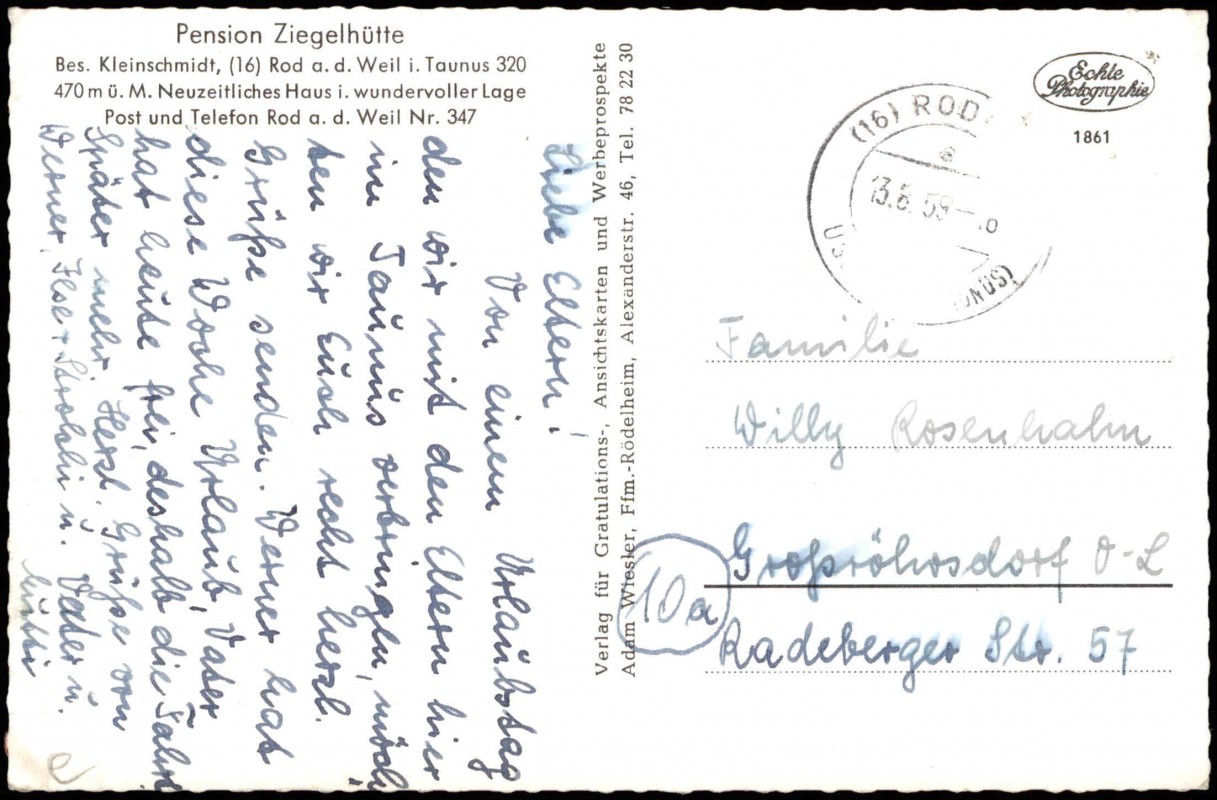 Pension Ziegelhütte
Bes. Kleinschmidt, (16) Rod a. d. Weil i. Taunus 320
470 m ü. M. Neuzeitliches Haus i. wundervoller Lage
Post und Telefon Rod a. d. Weil Nr. 347
Liebe Eltern!
Von einem Urlaubstag
den wir mit den Eltern hier
im Taunus verbringen, möch
ten wir Euch recht herzl.
Grüße senden. Werner hat
diese Woche Urlaub, Vater
hat heute frei, deshalb die Fahrt
Später mehr Herzl. Grüße von
Werner, Ilse + Strolchi u. Vater u.
Mutti
Verlag für Gratulations-, Ansichtskarten und Werbeprospekte
Adam Wiesler, Ffm.-Rödelheim, Alexanderstr. 46, Tel. 78 22 30
(16) ROD
13.5.59
NUS)
Echte
Photographie
1861
Familie
Willy Rosenhahn
Großröhrsdorf O-L
10a
Radeberger Str. 57